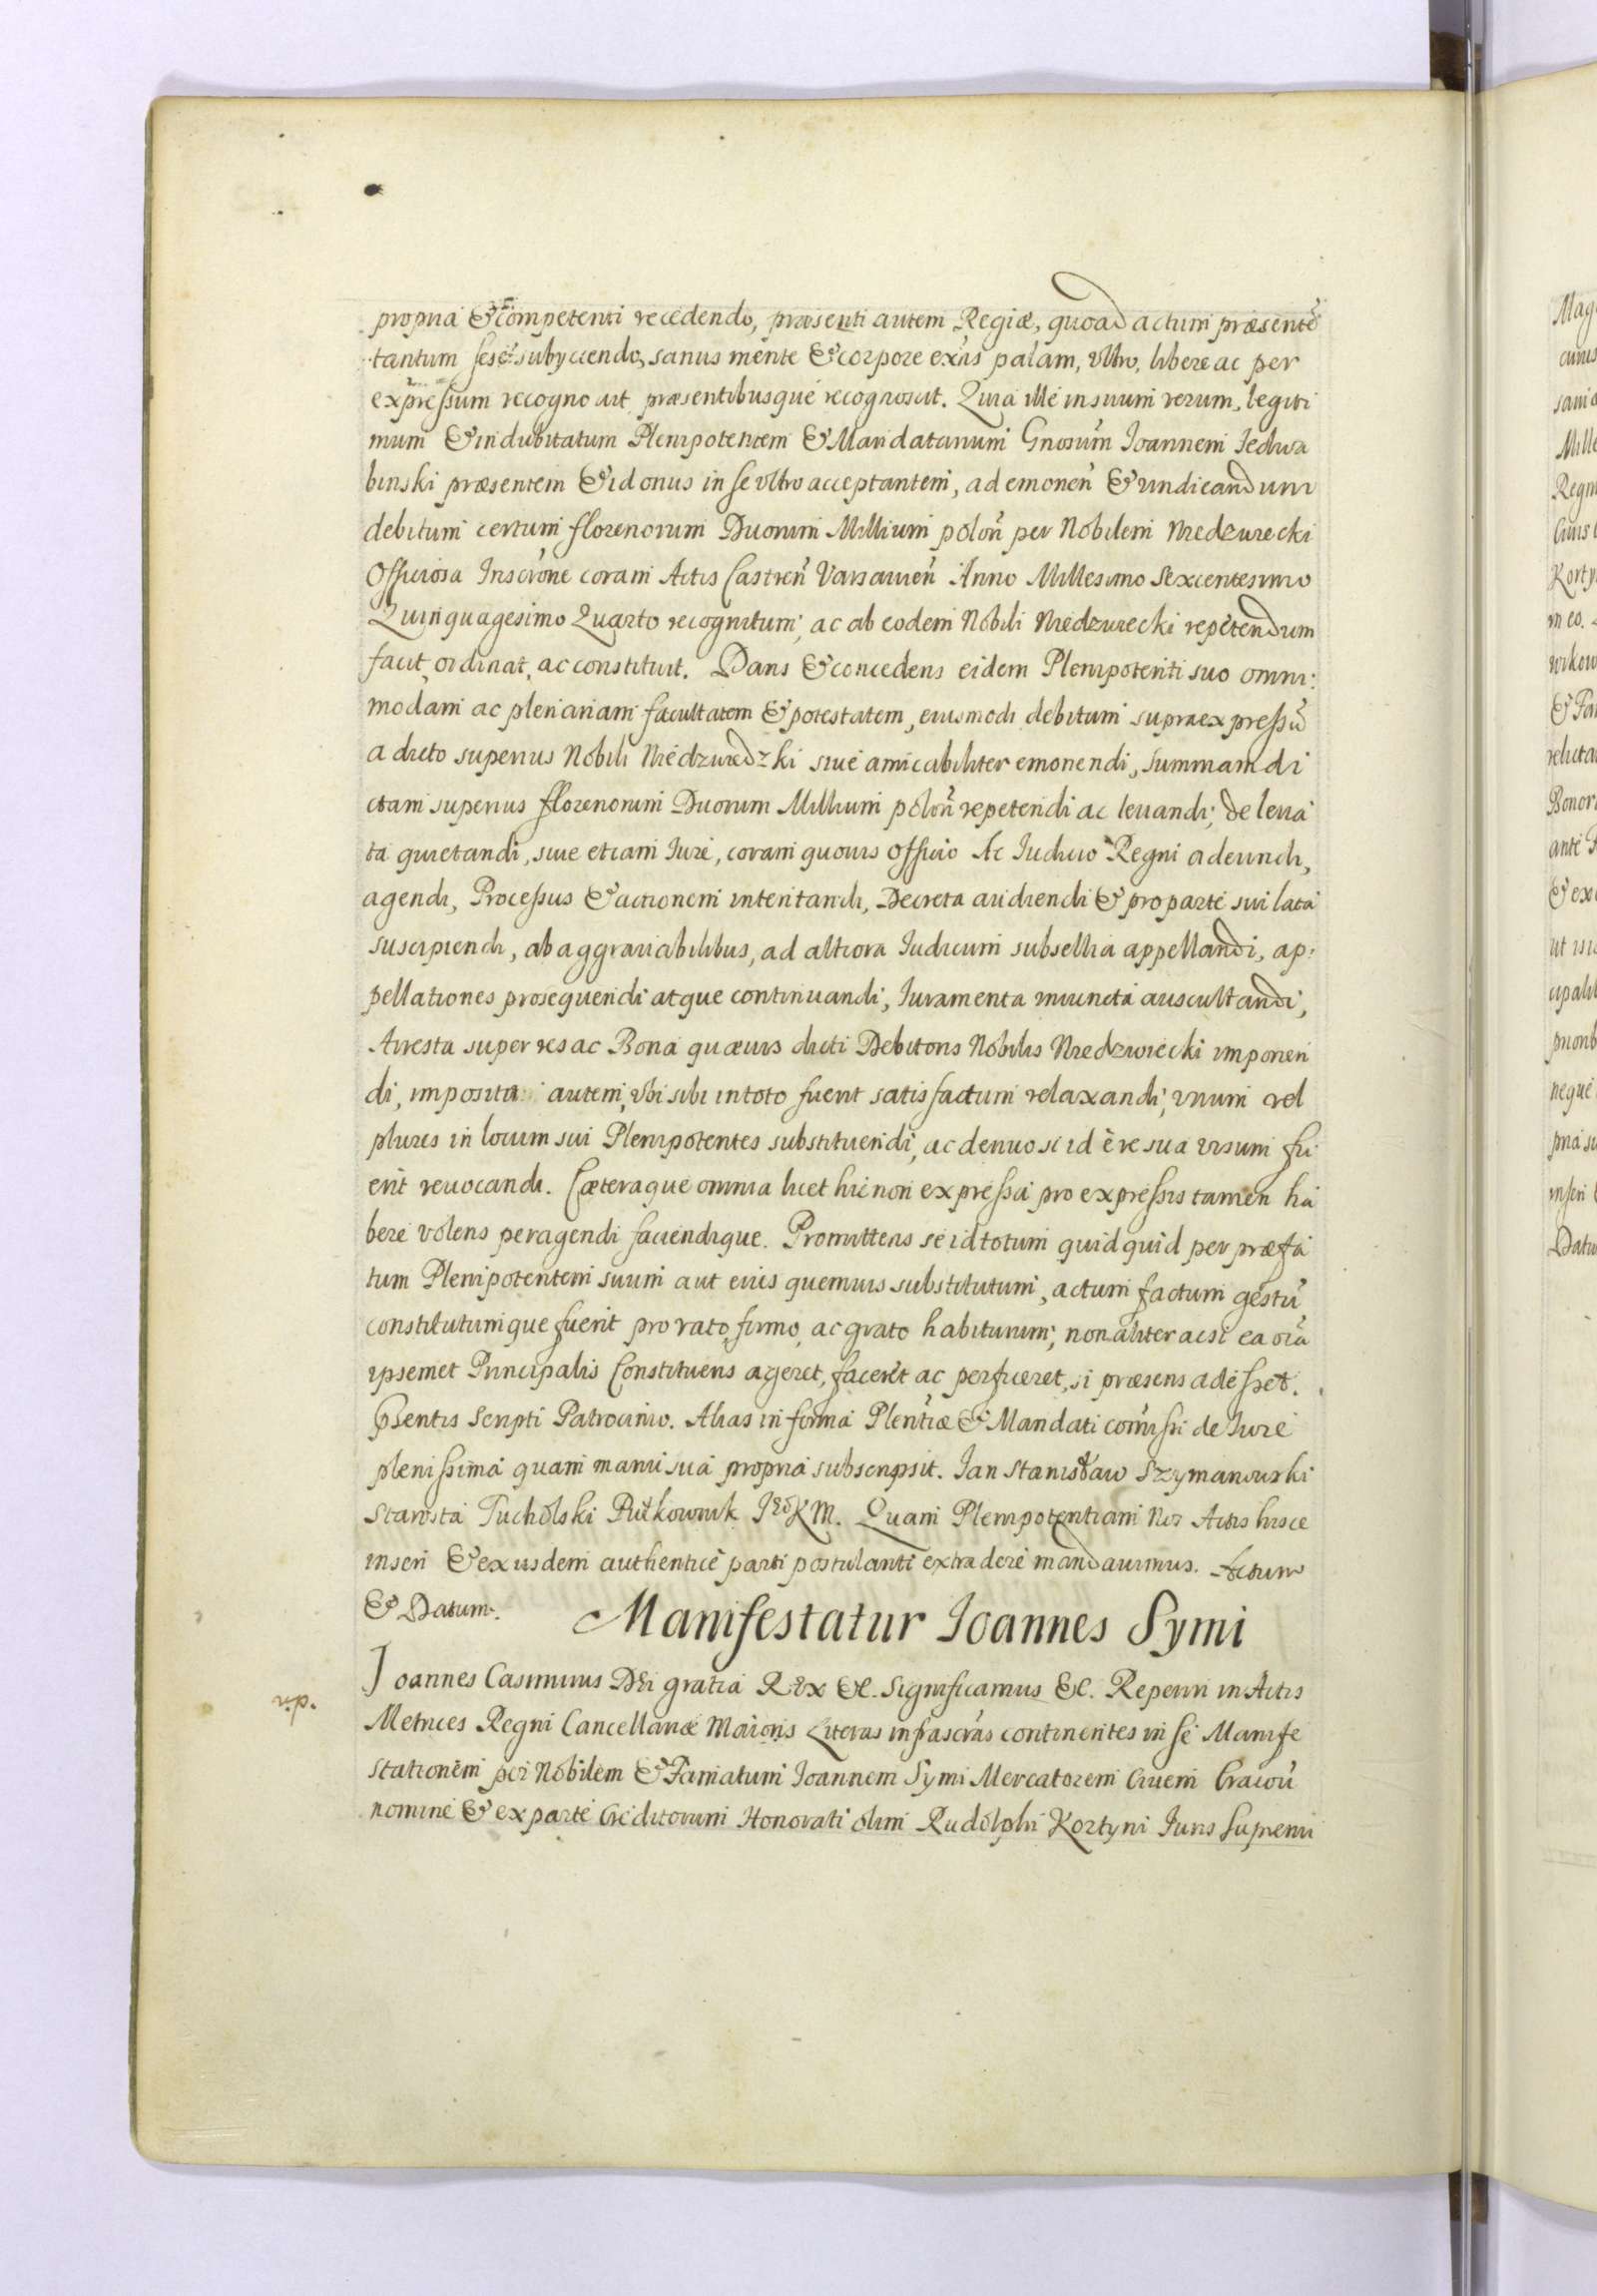 propria & competenti recedendo, præsenti autem Regiæ, quoad actum præsentẽ
tantum sese subyciendo, sanus mente & corpore exñs palam, vltro, libere ac per
expressum recognovit præsentibusque recognoscit. Quia ille in suum verum, legiti
mum & indubitatum Plenipotentem & Mandatarium Gnosum̃ Ioannem Iedwa
binski præsentem & id onus in se vltro acceptantem, ad emonen̄ & vindicandum
debitum certum florenorum Duorum Millium polon̄ per Nobilem Niedzwiecki
Officiosa Inscrone coram Actis Castren̄ Varsavien̄ Anno Millesimo Sexcentesimo
Quinquagesimo Quarto recognitum, ac ab eodem Nobili Niedzwiecki repetendum
facit, ordinat, ac constituit. Dans & concedens eidem Plenipotenti suo omni:
modam ac plenariam facultatem & potestatem, eiusmodi debitum supraexpressũ
a dicto superius Nobili Niedzwiedzki sive amicabiliter emonendi, summam di
ctam superius florenorum Duorum Millium polon̄ repetendi ac levandi; de leva
ta quietandi, sive etiam Iure, coram quovis Officio Ac Iudicio Regni adeundi,
agendi, Processus & actionem intentandi, Decreta audiendi & pro parte sui lata
suscipiendi, ab aggravabilibus, ad altiora Iudicum subsellia appellandi, ap:
pellationes prosequendi atque continuandi, Iuramenta iniuncta auscultandi,
Arresta super res ac Bona quævis dicti Debitoris Nobilis Niedzwiecki imponen
di, imposita autem, vbi sibi in toto fuerit satisfactum relaxandi, vnum vel
plures in locum sui Plenipotentes substituendi, ac denuo si id è re sua visum fu
erit revocandi. Cæteraque omnia licet hic non expressa pro expressis tamen ha
bere volens peragendi faciendique. Promittens se id totum quidquid per præfa
tum Plenipotentem suum aut eius quemvis substitutum, actum factum gestũ
constitutumque fuerit pro rato, firmo, ac grato habiturum, non aliter acsi ea oĩa
ipsemet Principalis Constituens ageret, faceret ac perficeret, si præsens adesset.
Pñsentis Scripti Patrocinio. Alias in forma Plentiæ & Mandati com̃issi de Iure
plenissima quam manu sua propria subscripsit. Jan Stanisław Szymanowski
Starosta Tucholski Pułkownik JeoKM. Quam Plenipotentiam Nos Actis hisce
inseri & ex iisdem authenticè parti postulanti extradere mandavimus. Actum
& Datum.
Manifestatur Ioannes Symi
Joannes Casimirus Dei gratia Rex &c. Significamus &c. Reperiri in Actis
r.p.
Metrices Regni Cancellariæ Maioris Literas infrascras̃ continentes in se Manife
stationem per Nobilem & Famatum Ioannem Symi Mercatorem Civem Cracov̄
nomine & ex parte Creditorum Honorati olim Rudolphi Kortyni Iuris Supremi